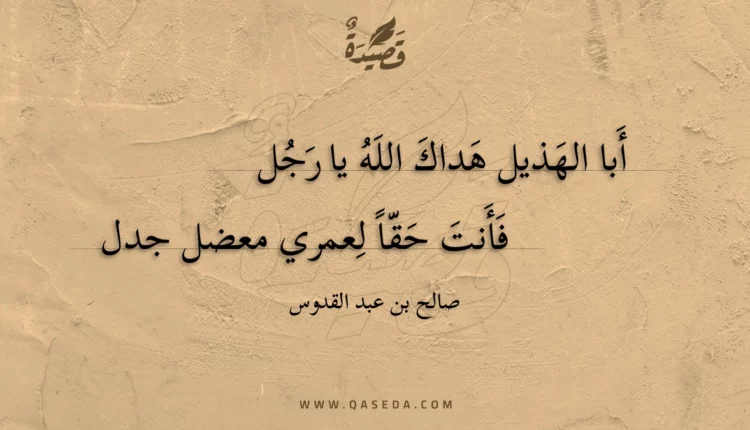 قَصِيدَةٌ
أَبا الهَذيل هَداكَ اللَهُ يا رَجُل
فَأَنتَ حَقّاً لِعمري معضل جدل
صالح بن عبد القدوس
WWW.QASEDA.COM